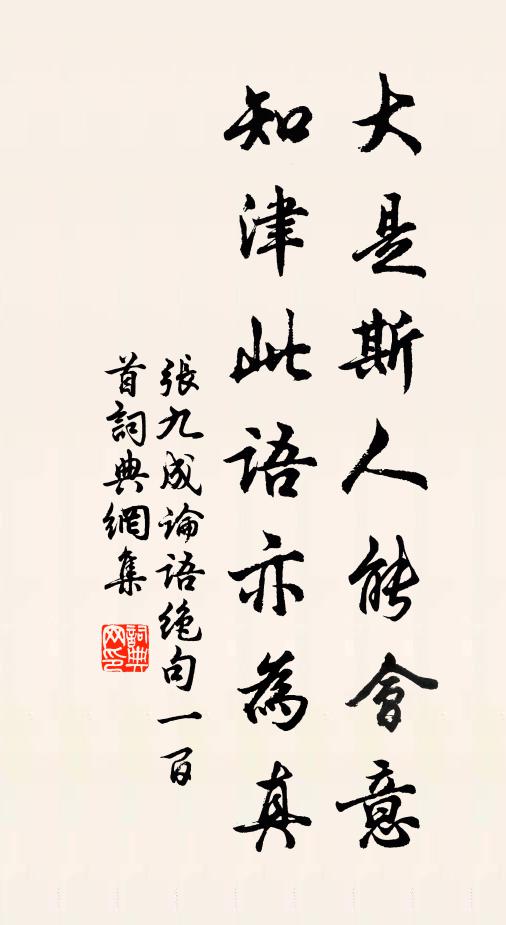 大是斯人能會意
知津此語亦為真
張九成論語绝句一百
首詞典網集
詞典
网印